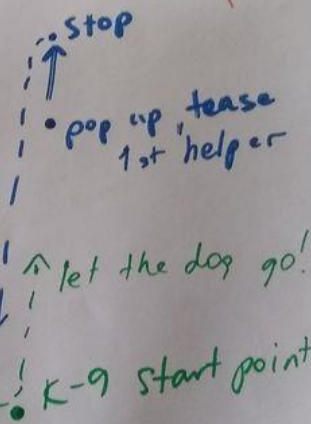 stop
pop up, tease
1st helper
let the dog go!
K-9 start point